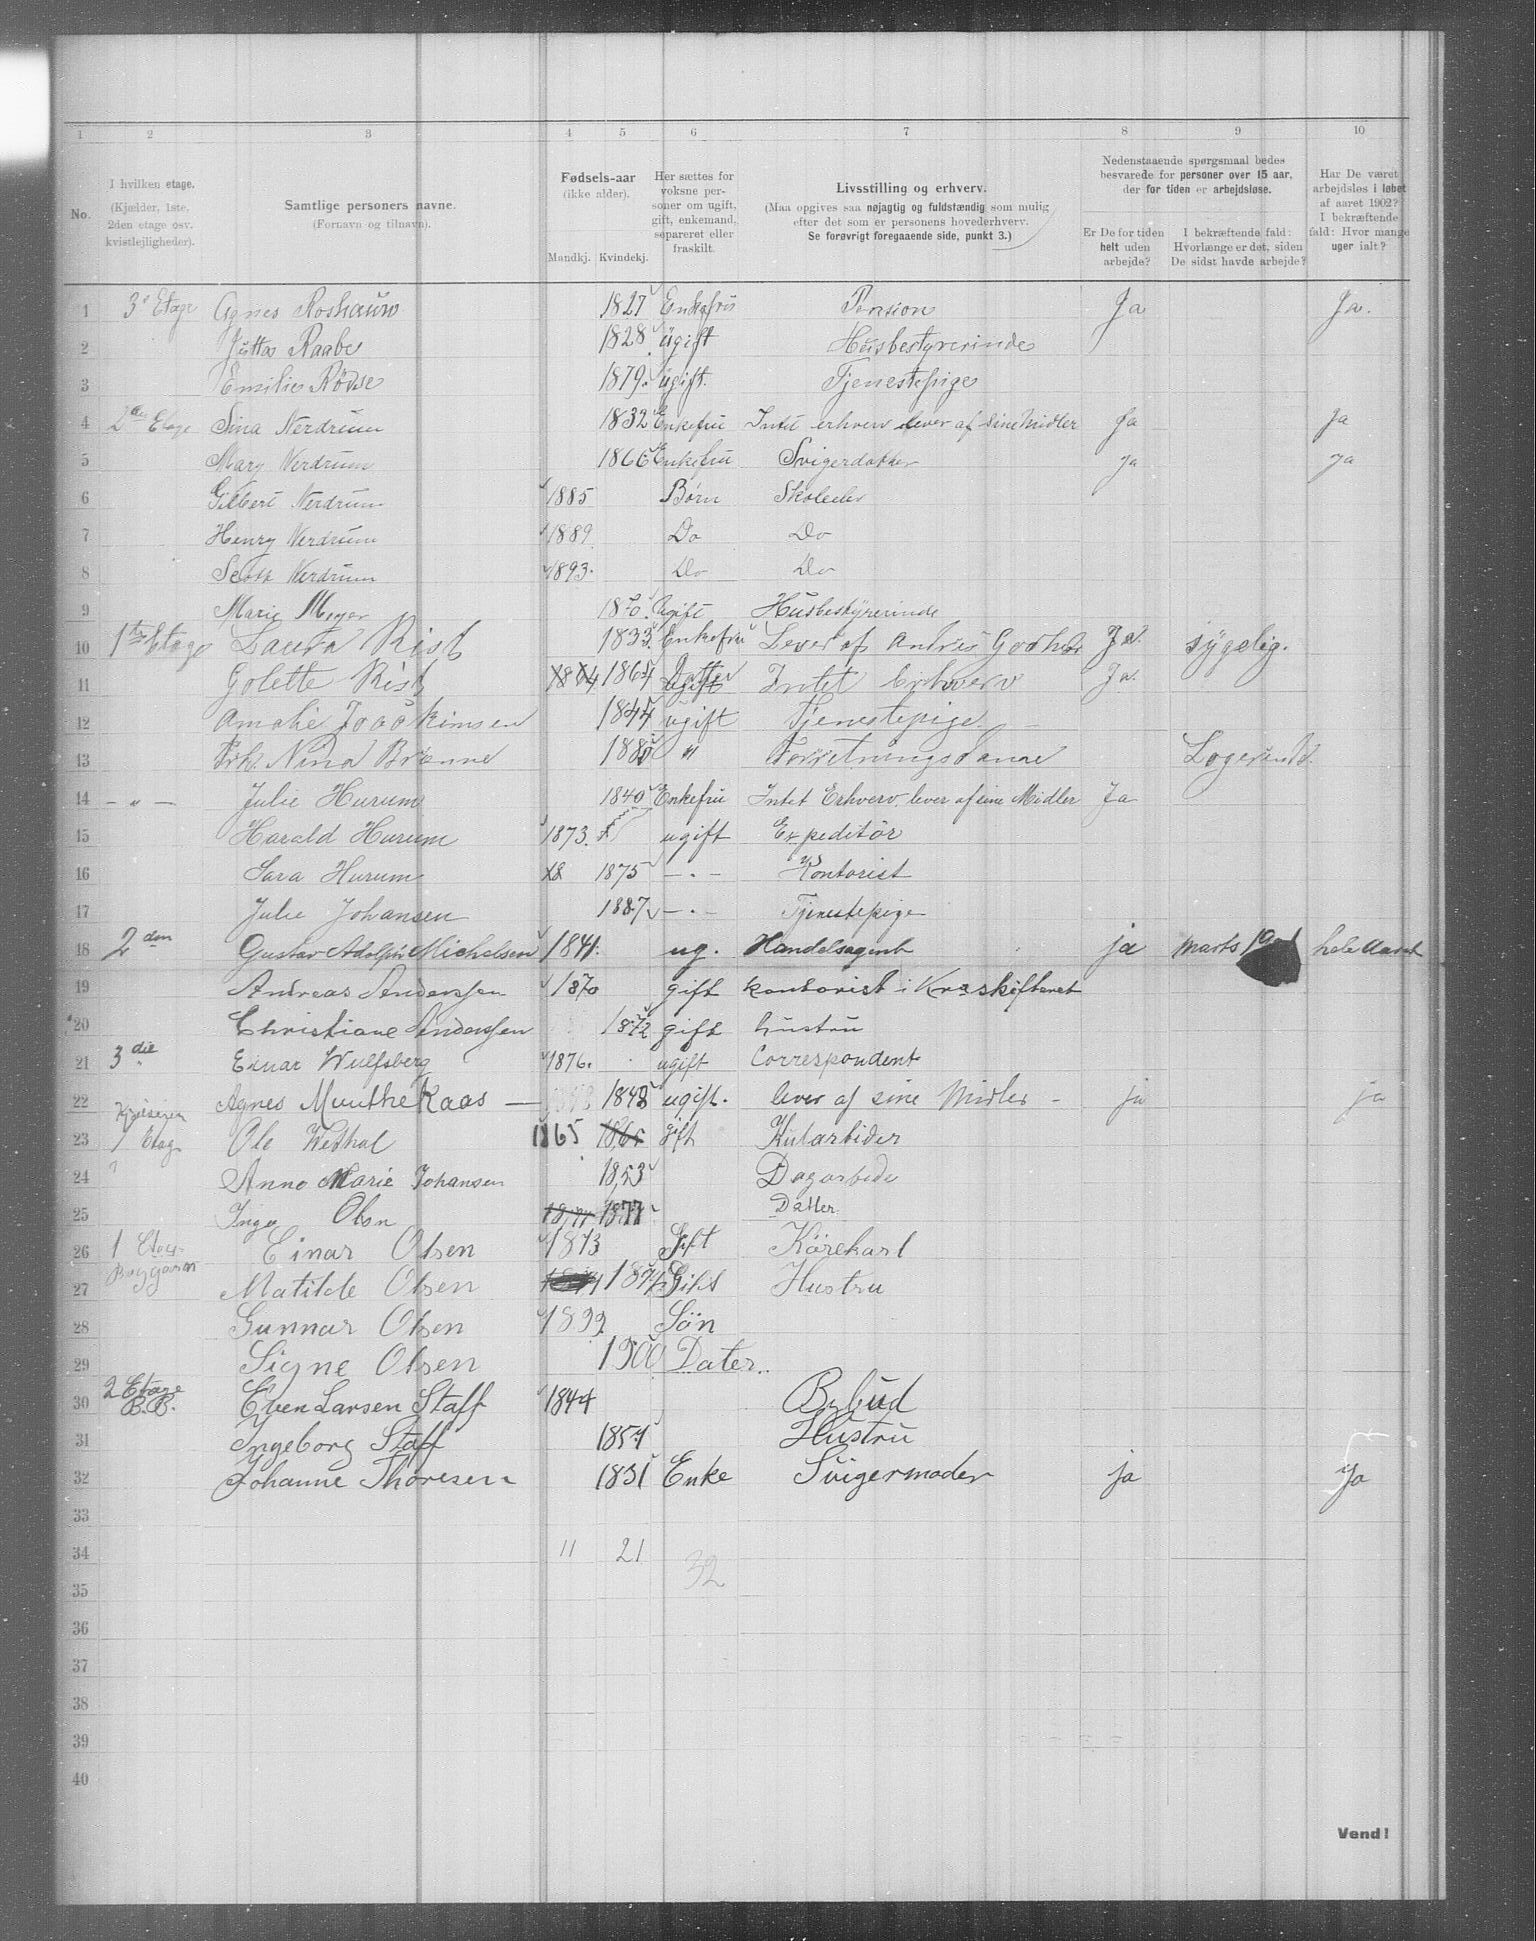 1 2 3 4 5 6 7 8 9 10
No.
I hvilken etage.
(Kjælder, 1ste, 2den etage osv. kvistlejligheder).
Samtlige personers navne.
(Fornavn og tilnavn).
Fødsels-aar
(ikke alder).
Mandkj. Kvindekj.
Her sættes for voksne personer om ugift, gift, enkemand, separeret eller fraskilt.
Livsstilling og erhverv.
(Maa opgives saa nøjagtig og fuldstændig som mulig efter det som er personens hovederhverv.
Se forøvrigt foregaaende side, punkt 3.)
Nedenstaaende spørgsmaal bedes besvarede for personer over 15 aar, der for tiden er arbejdsløse.
Er De for tiden helt uden arbejde?
I bekræftende fald: Hvorlænge er det, siden De sidst havde arbejde?
Har De været arbejdsløs i løbet af aaret 1902? I bekræftende fald: Hvor mange uger ialt?
1 3e Etage Agnes Roshauw 1827 Enkefru Pension Ja Ja.
2 Jutta Raabe 1828 ugift Husbestyrerinde
3 Emilie Rødse 1879. ugift. Tjenestepige
4 2den Etage Sina Nerdrum 1832 Enkefru Intet erhverv lever af sine Midler Ja Ja
5 Mary Nerdrum 1866 Enkefru Svigerdatter Ja Ja
6 Gilbert Nerdrum 1885 Børn Skoleelev
7 Henry Nerdrum 1889 Do Do
8 Scott Nerdrum 1893. Do Do
9 Marie Meyer 1870. Ugift Husbestyrerinde
10 1ste Etage Laura Rist 1833. Enkefru Lever af Andres Godhed Ja. sygelig.
11 Golette Rist 1864 Datter ugift Intet Erhverv Ja.
12 Amalie Joackimsen 1844 ugift Tjenestepige
13 Frk. Nina Brænne 1880 " Forretningsdame Logerende.
14 — " — Julie Hurum 1840 Enkefru Intet Erhverv, lever af sine Midler Ja
15 Harald Hurum 1873. ugift Expeditør
16 Sara Hurum 18 1875 — . — Kontorist
17 Julie Johansen 1887 — . — Tjenestepige
18 2den Gustav Adolph Michelsen 1841. ug. Handelsagent ja marts hele Aaret
19 Andreas Anderssen 1870 gift kontorist i Kra skifteret
20 Christiane Anderssen 1872 gift hustru
21 3die Einar Wulfsberg 1876. ugift Correspondent
22 Agnes Munthe Kaas — 1848 ugift. lever af sine Midler - ja ja
23 1 Etag Ole Westhal 1865 gift Kularbider
24 Anne Marie Johansen 1853 Dagarbede
25 Inga Olsn 1877 Datter
26 1 Etag Einar Olsen 1873 Gift Kørekarl
27 Baggaarn Matilde Olsen 1874 Gift Hustru
28 Gunnar Olsen 1899 Søn
29 Signe Olsen 1900 Dater..
30 2 Etage B.B. Even Larsen Staff 1844 Bybud
31 Ingeborg Staff 1857 Hustru
32 Johanne Thoresen 1831 Enke Svigermoder ja ja
33
34 11 21 32
35
36
37
38
39
40
Vend!